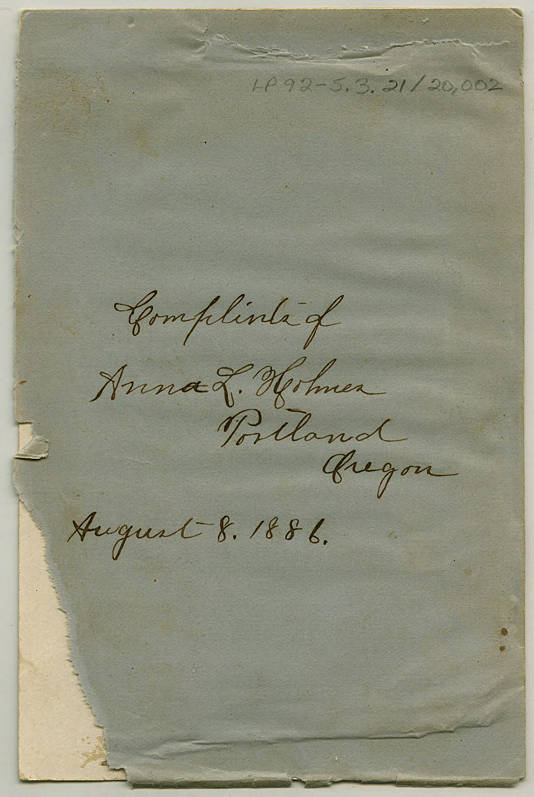 LP92-5.3.21/20,002
Complints of
Anna L. Holmes
Portland
Oregon
August 8. 1886.